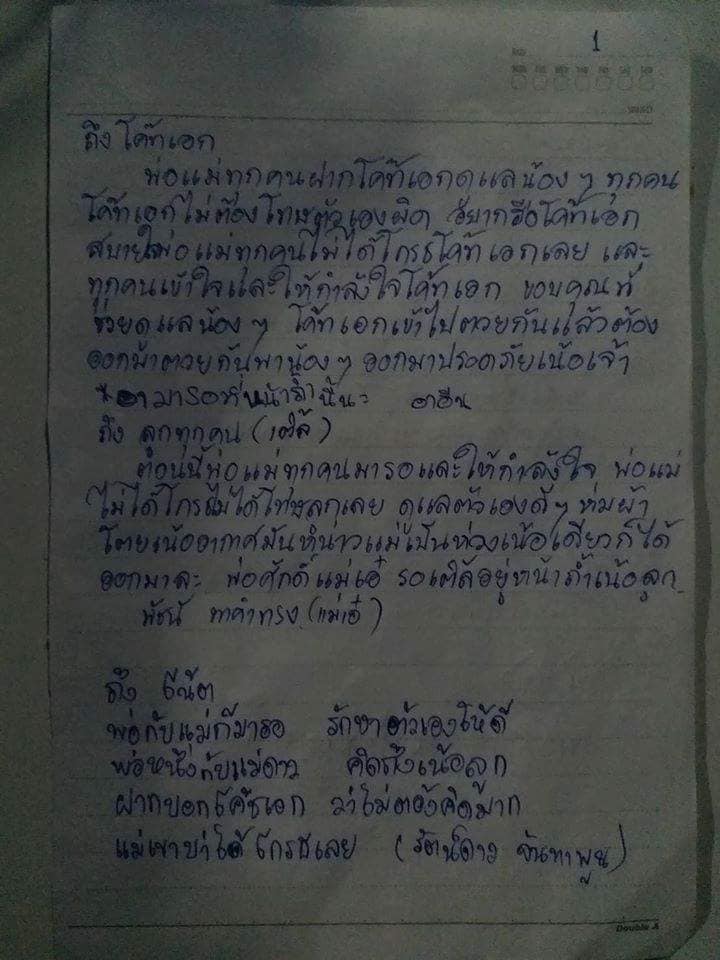 1
ถึง โค๊ทเอก
พ่อแม่ทุกคนฝากโค๊ทเอกดูแลน้อง ๆ ทุกคน
โค๊ทเอกไม่ต้องโทษตัวเองผิด อยากอือโค้ทเอก
สบายใจพ่อแม่ทุกคนไม่ได้โกรธโค้ทเอกเลย และ
ทุกคนเข้าใจและให้กำลังใจโค้ทเอก ขอบคุณที่
ช่วยดูแลน้อง ๆ โค้ทเอกเข้าไปตวยกันแล้วต้อง
ออกม้าตวยกันพาน้อง ๆ ออกมาปรอดภัยเน้อเจ้า
อามารอที่หน้าถ้ำนี้นะ อาอึน
ถึง ลูกทุกคน (เติ้ล้)
ตอนนี้พ่อแม่ทุกคนมารอและให้กำลังใจ พ่อแม่
ไม่ได้โกรธไม่ได้โทษลูกเลย ดูแลตัวเองดี ๆ ห่มผ้า
โตยเน้ออากาศมันหน่าวแม่เป็นห่วงเน้อเดียวก็ได้
ออกมาละ พ่อศักดิ์แม่เอ๋ รอเติ้ล้อยู่หน้าถ้ำเน้อลูก
พัชนี ทาคำทรง (แม่เอ๋)
ถึง นี๊ต
พ่อกับแม่ก็มารอ รักษาตัวเองให้ดี
พ่อหนึ่งกับแม่ดาว คิดถึงเน้อลูก
ฝากบอกโค้ชเอก ว่าไม่ต้องคิดมาก
แม่เขาบ่าได้โกรธเลย (รัตน์ดาว จันทาพูน)
Double A